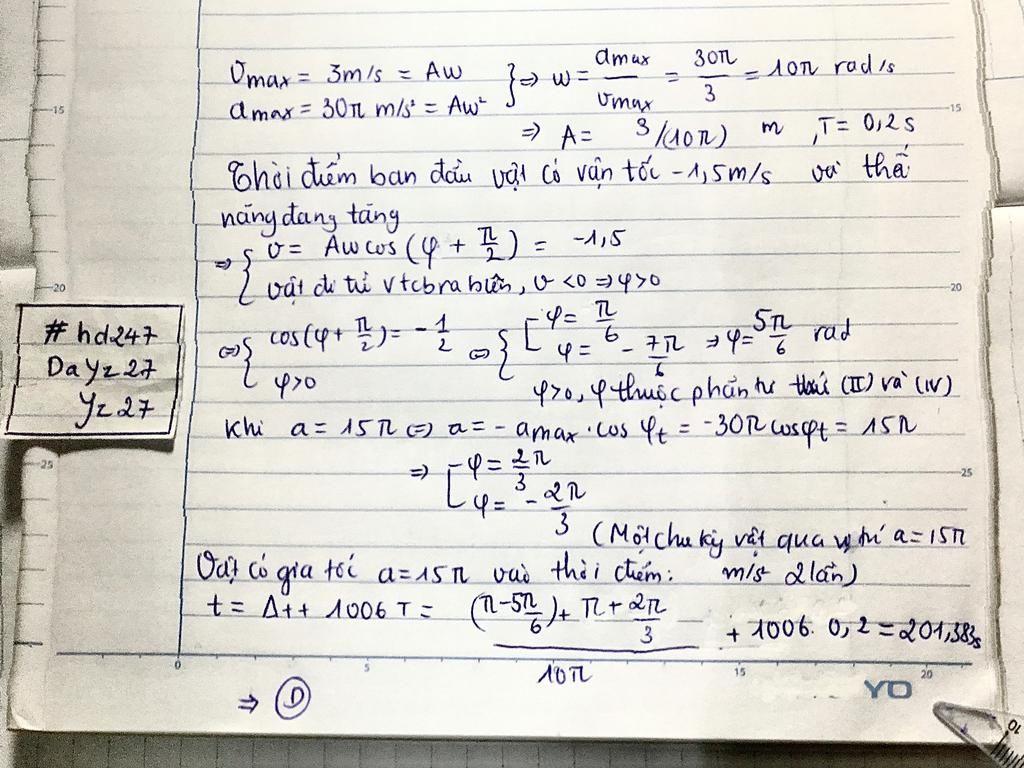 v_max = 3m/s = Aw } ⇒ w = a_max/v_max = 30π/3 = 10π rad/s
a_max = 30π m/s² = Aw²
⇒ A = 3/(10π) m , T = 0,2 s
Thời điểm ban đầu vật có vận tốc -1,5m/s và thế
năng đang tăng
⇒ { v = Aw cos(φ + π/2) = -1,5
vật đi từ vtcb ra biên, v < 0 ⇒ φ>0
⇔ { cos(φ + π/2) = -1/2 ⇔ { [ φ = π/6
φ>0 φ = - 7π/6 ⇒ φ = 5π/6 rad
φ>0, φ thuộc phần tư thứ (II) và (IV)
Khi a = 15π ⇔ a = - a_max . cos φ_t = -30π cosφ_t = 15π
⇒ [ φ = 2π/3
φ = - 2π/3
(Một chu kỳ vật qua vị trí a = 15π
Vật có gia tốc a = 15π vào thời điểm: m/s² 2 lần)
t = Δt + 1006 T = ((π - 5π/6) + π + 2π/3)/10π + 1006. 0,2 = 201,383s
⇒ D
# hd247
Dayz27
Yz27
15
20
25
15
20
25
0
5
15
20
YO
10